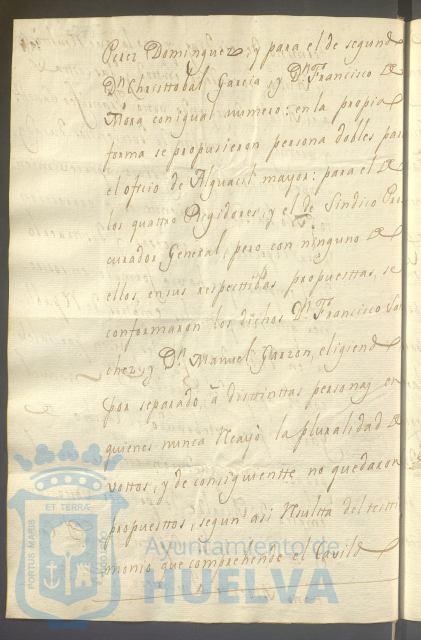 Perez Dominguez; y para el de segund
Dn. Christtobal Garcia, y Dn. Francisco de
Mora con igual numero: en la propia
forma se propusieron persona dobles para
el oficio de Alguacil mayor: para el de
los quattro Regidores, y el de Sindico Pro
curador General, pero con ninguno de
ellos, en sus respecttibas propuesttas, se
conformaron los dichos Dn. Francisco San
chez, y Dn. Manuel Garzon, eligiend
por separado, â disttinttas personas en
quienes nunca Recayò la pluralidad de
vottos, y de consiguientte no quedaron
propuesttos, segun asi Resultta del testti
monio que comprehende el Cavild
ET TERRÆ
PORTUS MARIS
CUSTODIA
Ayuntamiento de
HUELVA